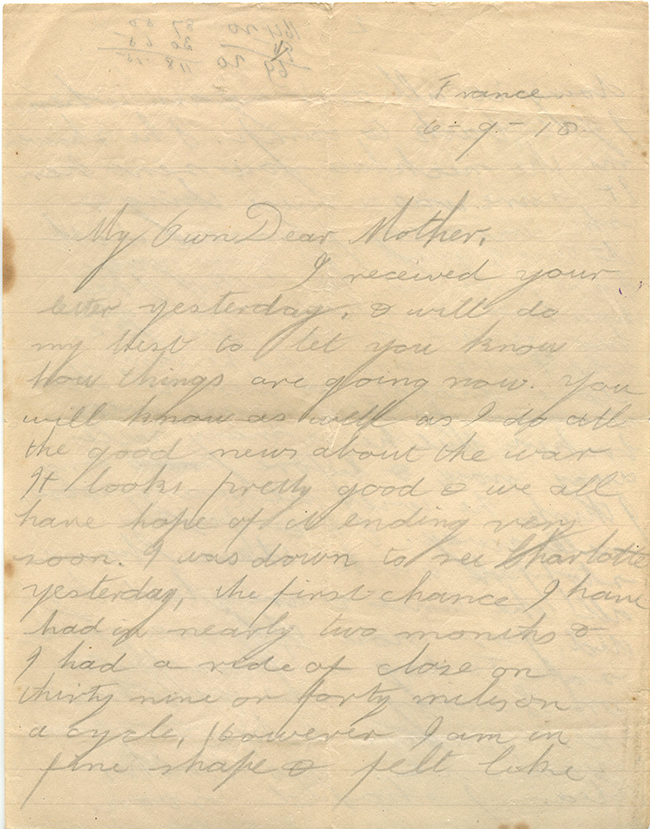 France
6-9-18.
My Own Dear Mother,
I received your
letter yesterday, & will do
my best to let you know
how things are going now. You
will know as well as I do all
the good news about the war
It looks pretty good & we all
have hope of it ending very
soon. I was down to see Charlotte
yesterday, the first chance I have
had in nearly two months &
I had a ride of close on
thirty nine or forty miles on
a cycle, However I am in
fine shape & felt like